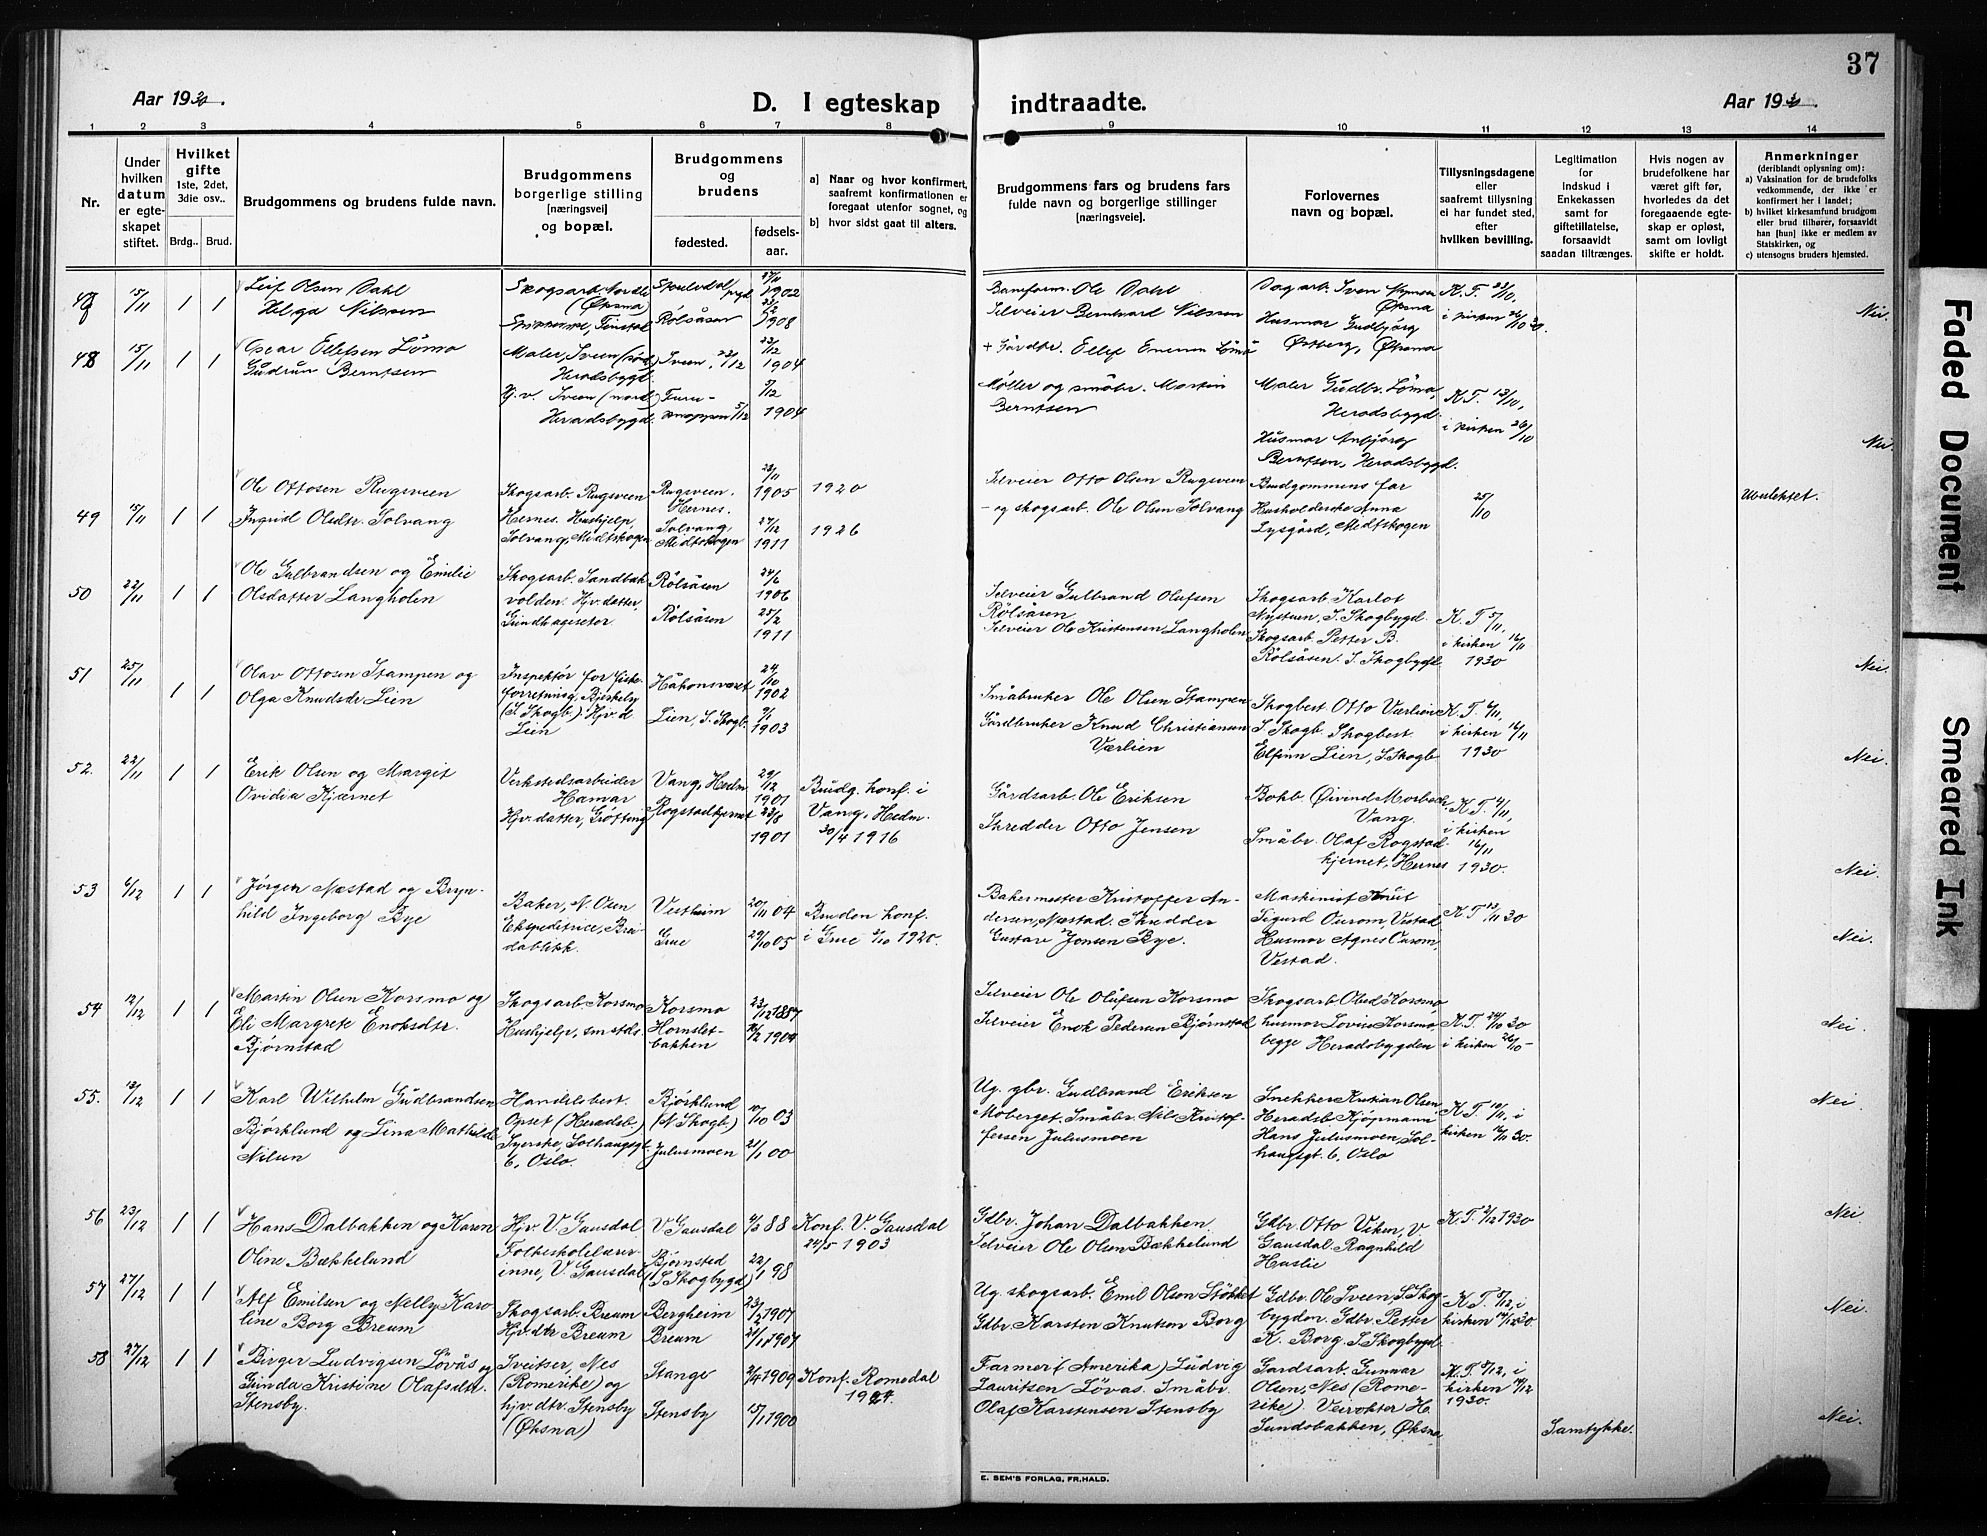 37
Aar 1930.
D. I egteskap indtraadte.
Aar 1930.
1 2 3 4 5 6 7 8 9 10 11 12 13 14
Nr.
Under hvilken datum er egteskapet stiftet.
Hvilket gifte 1ste, 2det, 3die osv..
Brdg.. Brud.
Brudgommens og brudens fulde navn.
Brudgommens borgerlige stilling [næringsvei] og bopæl.
Brudgommens og brudens
fødested.
fødselsaar.
a) Naar og hvor konfirmert, saafremt konfirmationen er foregaat utenfor sognet, og
b) hvor sidst gaat til alters.
Brudgommens fars og brudens fars fulde navn og borgerlige stillinger [næringsveie].
Forlovernes navn og bopæl.
Tillysningsdagene eller saafremt tillysning ei har fundet sted, efter hvilken bevilling.
Legitimation for indskud i Enkekassen samt for giftetillatelse, forsaavidt saadan tiltrænges.
Hvis nogen av brudefolkene har været gift før, hvorledes da det foregaaende egteskap er opløst, samt om lovligt skifte er holdt.
Anmerkninger (deriblandt oplysning om):
a) Vaksination for de brudefolks vedkommende, der ikke er konfirmert her i landet;
b) hvilket kirkesamfund brudgom eller brud tilhører, forsaavidt han [hun] ikke er medlem av Statskirken, og
c) utensogns bruders hjemsted.
47 15/11 1 1
Leif Olsen Dahl
Helga Nilssen
27/4 1902
Rölsåsen 1908
Ole Dahl
Selveier Bernhard Nilssen
Husmor Gudbjörg Östberg, Øksna
i kirken 26/10 30.
Nei.
48 15/11 1 1
Oscar Ellefsen Lömo
Gudrun Berntsen
Maler, Sveen (nord) Heradsbygd.
Hj.v. Sveen (nord) Heradsbygd.
Sveen 23/12 1904
Furuknappen 5/12 1904
Møller og småbr. Martin Berntsen
Maler Gudbr. Lömo, Heradsbygd.
Husmor Anbjörg Berntsen, Heradsbygd.
K.T. 13/10, i kirken 26/10
Nei
49 15/11 1 1
Ole Ottosen Rugsveen
Ingrid Olsdtr. Solvang
Skogsarb. Rugsveen Hernes. Hushjelp, Solvang, Midtskogen
Rugsveen. Hernes. 23/11 1905
Solvang Midtskogen 27/12 1911
1920
1926
Selveier Otto Olsen Rugsveen
- og skogsarb. Ole Olsen Solvang
Brudgommens far
Husholderske Anna Lysgård, Midtskogen
25/10
Uslektet.
50 22/11 1 1
Ole Gulbrandsen og Emilie
Olsdatter Langholen
Skogsarb. Sandbakvolden. Hjv. datter, Grindhagesetor
Rölsåsen 24/6 1906
Rölsåsen 25/2 1911
Selveier Gulbrand Olufsen Rölsåsen
Selveier Ole Kristensen Langholen
Skogsarb. Karlot Nystuen, S. Skogbygd.
Skogsarb. Petter B. Rölsåsen. S. Skogbygd
K.T. 5/11, i kirken 16/11 1930
Nei.
51 25/11 1 1
Olav Ottosen Stampen og
Olga Knudsdr. Lien
Inspektør for fiskeforretning, Bjerkeby (S. Skogb.). Hjv. d Lien
Håkonsvæet 24/10 1902
Lien, S. Skogb. 9/1 1903
Småbruker Ole Olsen Stampen
Gårdbruker Knud Christiansen Værlien
Skogbest. Otto Værlien S. Skogb. Skogbest Elfinn Lien, S. Skogb
K.T. 6/11, i kirken 16/11 1930
Nei.
52. 22/11 1 1
Erik Olsen og Margit
Ovidia Kjærnet
Verkstedsarbeider Hamar
Hjv. datter, Gröfting
Vang, Hedm 29/12 1901
Rogstadkjernet 23/8 1901
Brudg. konf. i Vang, Hedm. 30/4 1916
Gårdsarb. Ole Eriksen
Skredder Otto Jensen
Bokb. Øivind Morbech. Vang.
Småbr. Olaf Rogstadkjernet, Hernes
K.T. 4/11, i kirken 16/11 1930.
Nei.
53 6/12 1 1
Jørgen Næstad og Brynhild Ingeborg Bye
Baker, N. Osen
Ekspeditrice, Breidablikk.
Vestheim 20/11 04
Grue 29/10 05
Bruden konf. i Grue 3/10 1920.
Bakermester Kristoffer Andersen, Næstad. Skredder Gustav Jensen Bye.
Maskinist Knut Sigurd Ourom, Vestad
Husmor Agnes Ourom, Vestad.
K.T. 13/11 30
Nei.
54 12/12 1 1
Martin Olsen Korsmo og
Eli Margrete Enoksdtr. Bjørnstad
Skogsarb. Korsmo
Hushjelp, smstds.
Korsmo 23/12 1887
Hornsletbakken 10/2 1904
Selveier Ole Olufsen Korsmo
Selveier Enok Pedersen Bjørnstad
Skogsarb. Obed Korsmo, husmor Lovise Korsmo begge Heradsbygden
K.T. 24/10 30 i kirken 26/10-
Nei.
55. 13/12 1 1
Karl Wilhelm Gudbrandsen
Bjørklund og Lina Mathilde Nilsen
Handelsbest. Opset (Heradsb.)
Syerske, Solhaugsgt. 6, Oslo.
Bjørklund (N. Skogb.) 10/10 03
Julusmoen 21/1 00
Ug. gbr. Gudbrand Eriksen Moberget. Småbr. Nils Kristoffersen Julusmoen
Snekker Kristian Olsen, Heradsb. Kjøpmann Hans Julusmoen, Solhaugsgt. 6, Oslo
K.T. 10/11, i kirken 16/11 30.
Nei.
56 23/12 1 1
Hans Dalbakken og Karen
Oline Bækkelund
Hjv. V. Gausdal
Folkeskolelærerinne, V. Gausdal
V. Gausdal 9/3 88
Bjørnsted (S. Skogbygd) 22/1 98
Konf. V. Gausdal 24/5 1903
Gdbr. Johan Dalbakken
Selveier Ole Olsen Bækkelund
Gdbr. Otto Viken, V Gausdal. Ragnhild Huslie
K.T. 2/12 1930
Nei
57 27/12 1 1
Alf Emilsen og Nelly Karoline Borg Breum
Skogsarb. Breum
Hjv. dtr Breum
Bergheim 23/2 1907
Breum 21/1 1907
Ug. skogsarb. Emil Olsen Stöbket
Gdbr. Karsten Knutsen Borg
Gdbr. Ole Sveen, S. Skogbygden. Gdbr. Petter K. Borg S. Skogbygd
K.T. 5/12, i kirken 14/12 30.
Nei.
58 27/12 1 1
Birger Ludvigsen Løvås og
Gunda Kristine Olafsdtr. Stensby.
Sveitser, Nes (Romerike) og hjv. dtr. Stensby (Øksna)
Stange 2/4 1909
Stensby 15/1 1900
Konf. Romedal 1924.
Farmer (Amerika) Ludvig Lauritsen Løvås. Småbr. Olaf Karstensen Stensby
Gardsarb. Gunnar Olsen, Nes (Romerike). Veivokter H. Sundsbakken, Øksna
K.T. 5/12, i kirken 14/12 1930.
Samtykke.
Nei.
E. SEM'S FORLAG, FR.HALD.
Faded Document
Smeared Ink